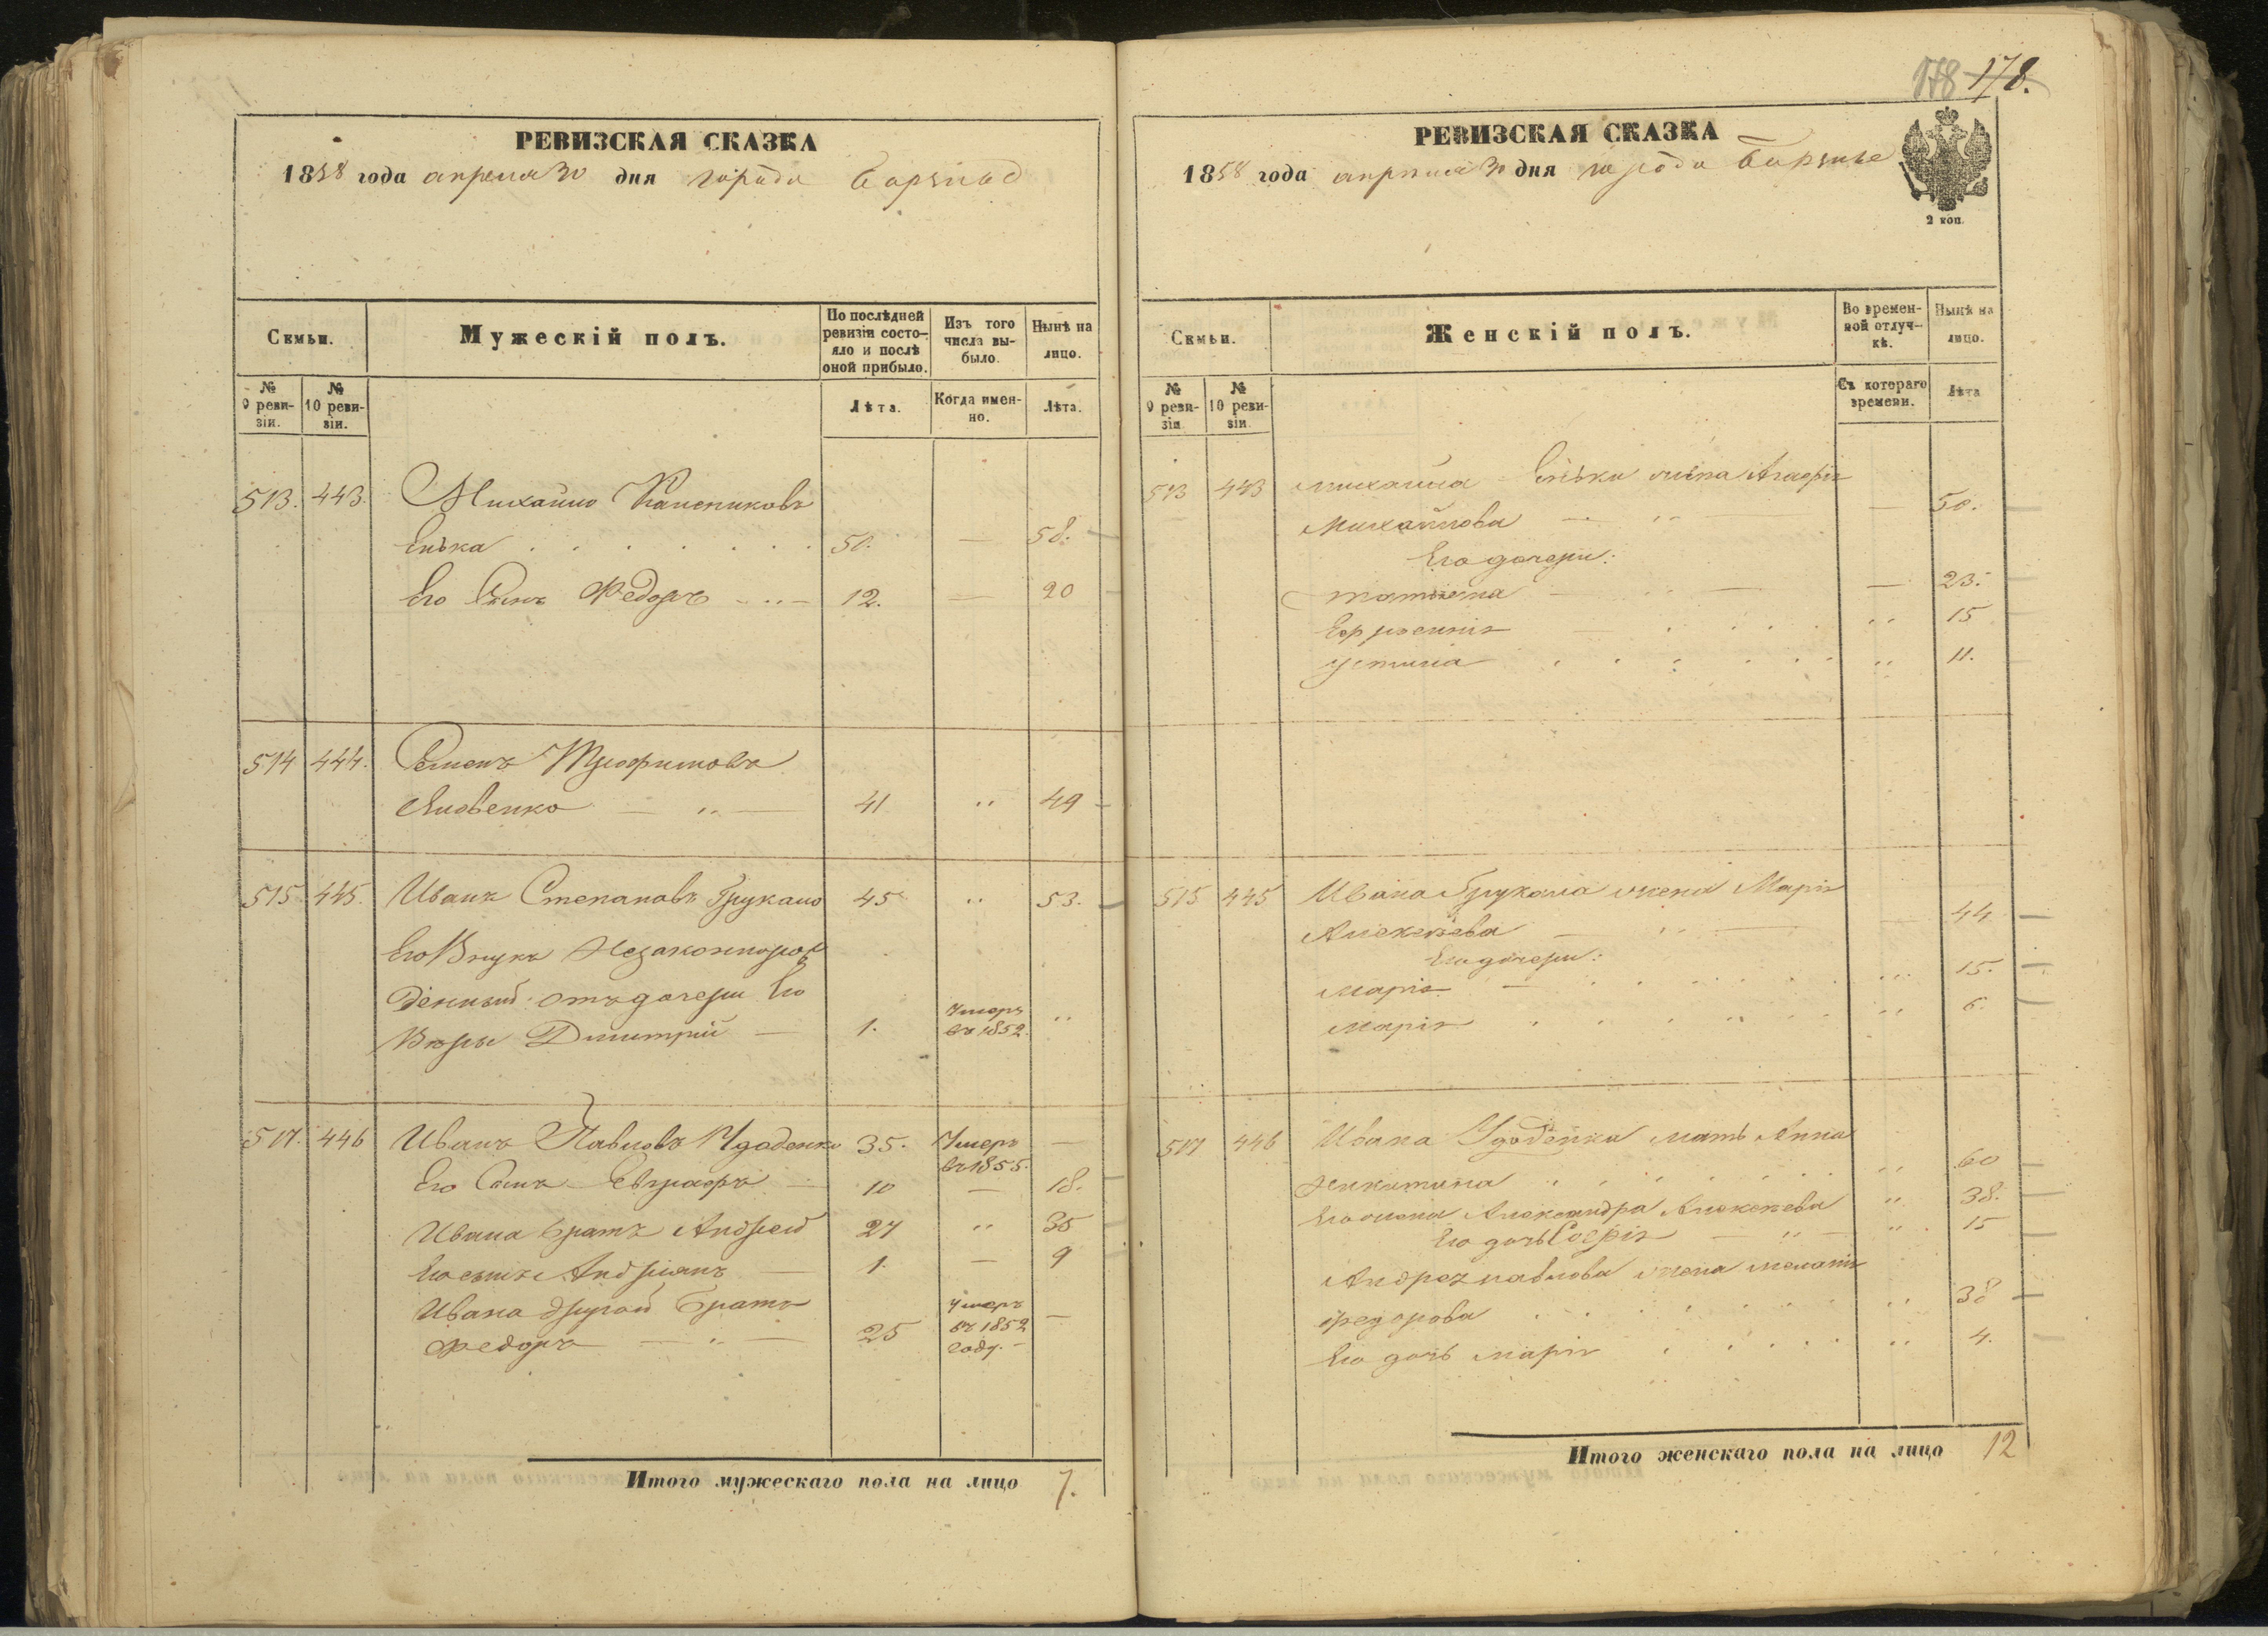 РЕВИЗСКАЯ СКАЗКА
1858 года апреля 30 дня города
Семьи.
Мужескій полъ.
По послѣдней ревизіи состояло и послѣ оной прибыло.
Изъ того числа выбыло.
Нынѣ на лицо.
№ 9 ревизіи.
№ 10 ревизіи.
Лѣта.
Когда именно.
Лѣта.
513. 443. Михайло
Енька 50. — 58.
Его Сынъ Федоръ 12. — 20
514 444. Семенъ Трофимовъ
Яковенко 41 " 49
515 445. Иванъ Степановъ Грукало 45 " 53.
Его Внукъ Незаконнорож
денный отъ дочери Его
Вѣры Дмитрій — 1. Умеръ въ 1852. "
517. 446 Иванъ Павловъ Удоденко 35. Умеръ въ 1855. —
Его Сынъ Евграфъ 10 — 18.
Ивана братъ Андрей 27 " 35
Его сынъ Андріянъ — 1. — 9
Ивана другой братъ
Федоръ 25 Умеръ въ 1852 году. —
Итого мужескаго пола на лицо 7.
178 178.
РЕВИЗСКАЯ СКАЗКА
1858 года апреля 30 дня города
2 коп.
Семьи.
Женскій полъ.
Во временной отлучкѣ.
Нынѣ на лицо.
№ 9 ревизіи
№ 10 ревизіи
Съ котораго времени.
Лѣта
513 443 Михайла Еньки жена Агафія
Михайлова — 50.
Его дочери:
Татіяна — 23.
Ефросинія " 15
Устинія " 11.
515 445 Ивана Грукала жена Марія
Алексѣева 44
Его дочери:
Марія " 15.
Марія " 6.
517 446 Ивана Удоденка мать Анна
Никитина " 60
Его жена Александра Алексѣева " 38.
Его дочь Софія — " — " 15
Андрея Павлова жена Меланія
Федорова " 38
Его дочь Марія " 4.
Итого женскаго пола на лицо 12